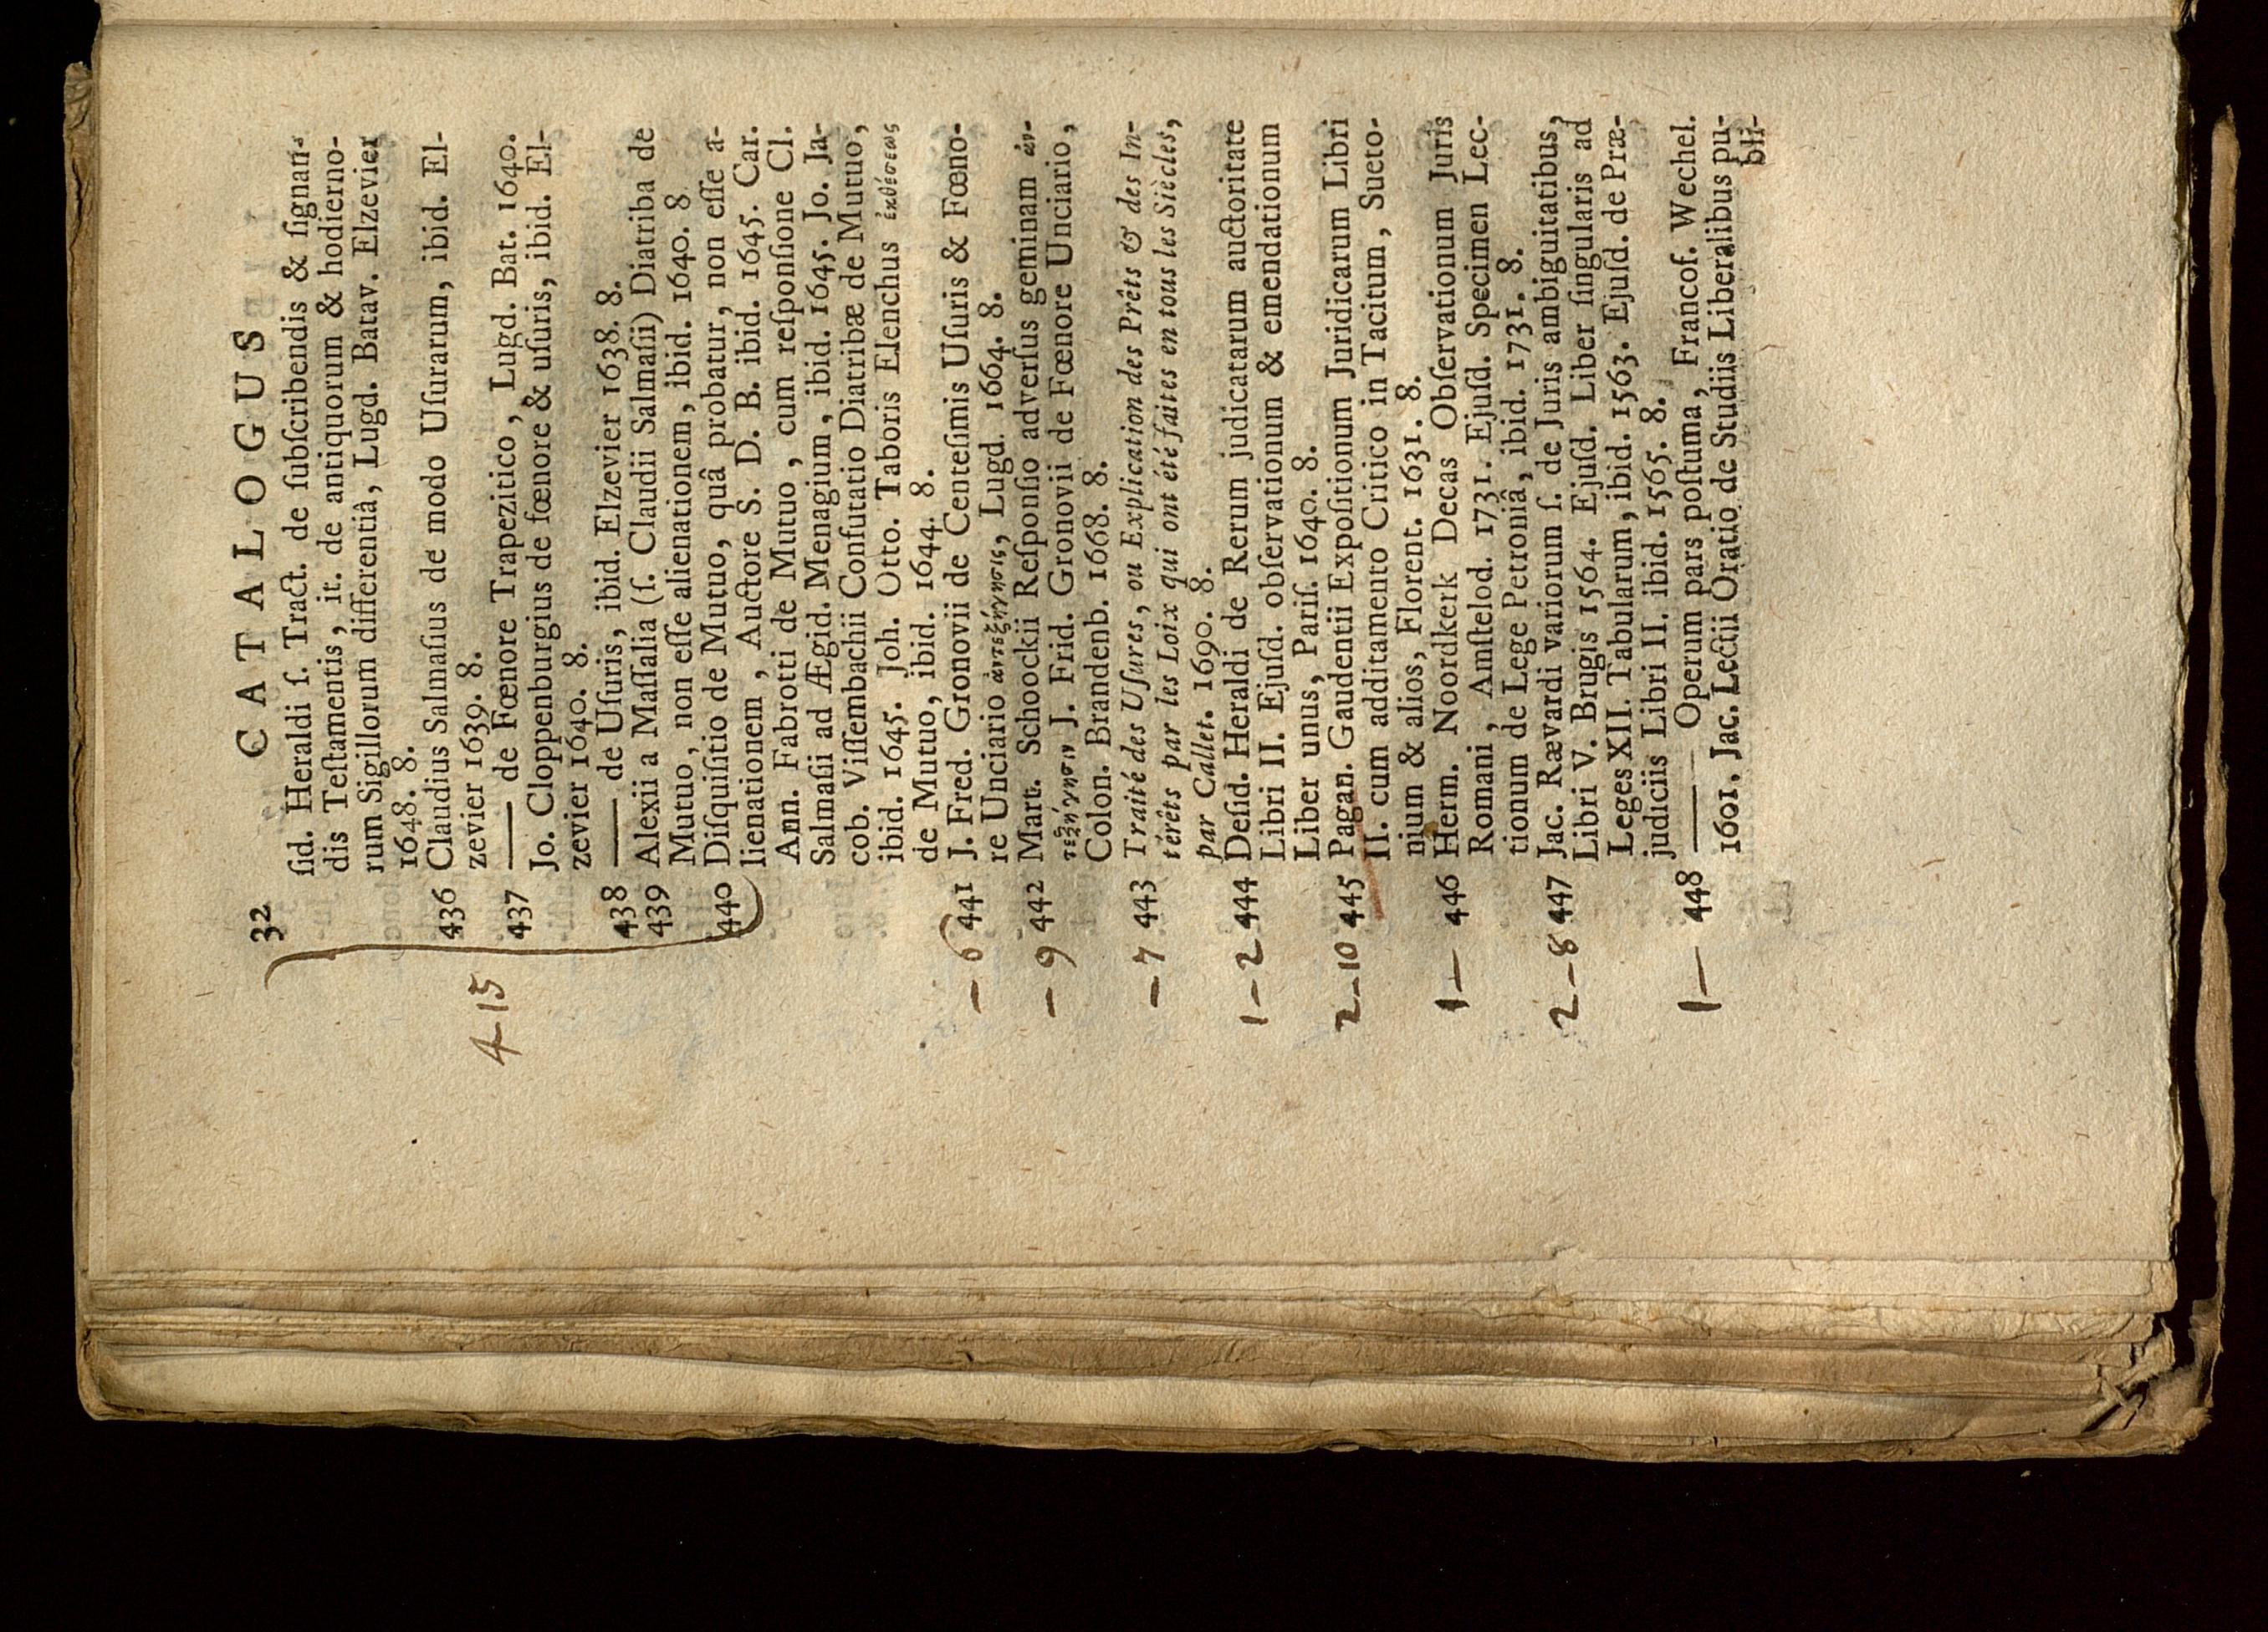 32 CATALOGUS
ſid. Heraldi ſ. Tract. de ſubſcribendis & ſignan-
dis Teſtamentis, it. de antiquorum & hodierno-
rum Sigillorum differentiâ, Lugd. Batav. Elzevier
1648. 8.
436 Claudius Salmaſius de modo Uſurarum, ibid. El-
zevier 1639. 8.
4-15
437 —— de Fœnore Trapezitico, Lugd. Bat. 1640.
Jo. Cloppenburgius de fœnore & uſuris, ibid. El-
zevier 1640. 8.
438 —— de Uſuris, ibid. Elzevier 1638. 8.
439 Alexii a Maſſalia (ſ. Claudii Salmaſii) Diatriba de
Mutuo, non eſſe alienationem, ibid. 1640. 8
440 Diſquiſitio de Mutuo, quâ probatur, non eſſe a-
lienationem, Auctore S. D. B. ibid. 1645. Car.
Ann. Fabrotti de Mutuo, cum reſponſione Cl.
Salmaſii ad Ægid. Menagium, ibid. 1645. Jo. Ja-
cob. Viſſembachii Confutatio Diatribæ de Mutuo,
ibid. 1645. Joh. Otto. Taboris Elenchus ἐκθέσεως
de Mutuo, ibid. 1644. 8.
- 6 441 J. Fred. Gronovii de Centeſimis Uſuris & Fœno-
re Unciario ἀντεξήγησις, Lugd. 1664. 8.
- 9 442 Mart. Schoockii Reſponſio adverſus geminam ἀν-
τεξήγησιν J. Frid. Gronovii de Fœnore Unciario,
Colon. Brandenb. 1668. 8.
- 7 443 Traité des Uſures, ou Explication des Prêts & des In-
térêts par les Loix qui ont été faites en tous les Siècles,
par Callet. 1690. 8.
1-2 444 Deſid. Heraldi de Rerum judicatarum auctoritate
Libri II. Ejuſd. obſervationum & emendationum
Liber unus, Pariſ. 1640. 8.
2-10 445 Pagan. Gaudentii Expoſitionum Juridicarum Libri
II. cum additamento Critico in Tacitum, Sueto-
nium & alios, Florent. 1631. 8.
1- 446 Herm. Noordkerk Decas Obſervationum Juris
Romani, Amſtelod. 1731. Ejuſd. Specimen Lec-
tionum de Lege Petroniâ, ibid. 1731. 8.
2-8 447 Jac. Rævardi variorum ſ. de Juris ambiguitatibus,
Libri V. Brugis 1564. Ejuſd. Liber ſingularis ad
Leges XII. Tabularum, ibid. 1563. Ejuſd. de Præ-
judiciis Libri II. ibid. 1565. 8.
1- 448 —— Operum pars poſtuma, Francof. Wechel.
1601. Jac. Lectii Oratio de Studiis Liberalibus pu-
bli-